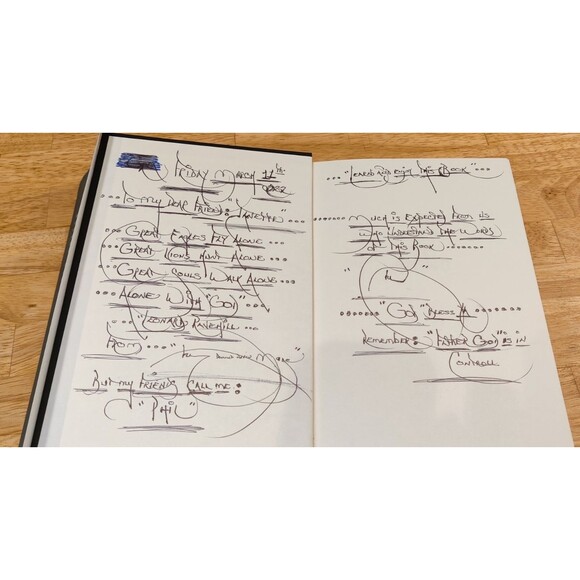 Friday March 11th
2022
To my dear friend:
Great Eagles Fly Alone
Great Lions Hunt Alone
Great Souls Walk Alone
Alone With "God"
"Leonard Ravenhill
From
But my friends call me:
"Phil"
enjoy this Book"
Much is Expected from us
who understand the words
of this Book
"God" Bless
Remember: "Father God" is in
Controll